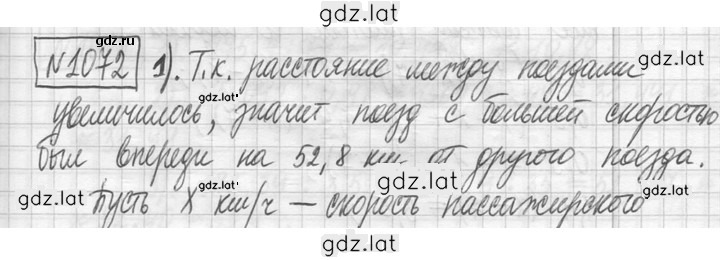 gdz.lat
gdz.ru
№1072 1). Т.к. расстояние между поездами
gdz.lat
увеличилось, значит поезд с большей скоростью
был впереди на 52,8 км от другого поезда.
gdz.lat gdz.lat gdz.lat
Пусть х км/ч – скорость пассажирского
gdz.lat